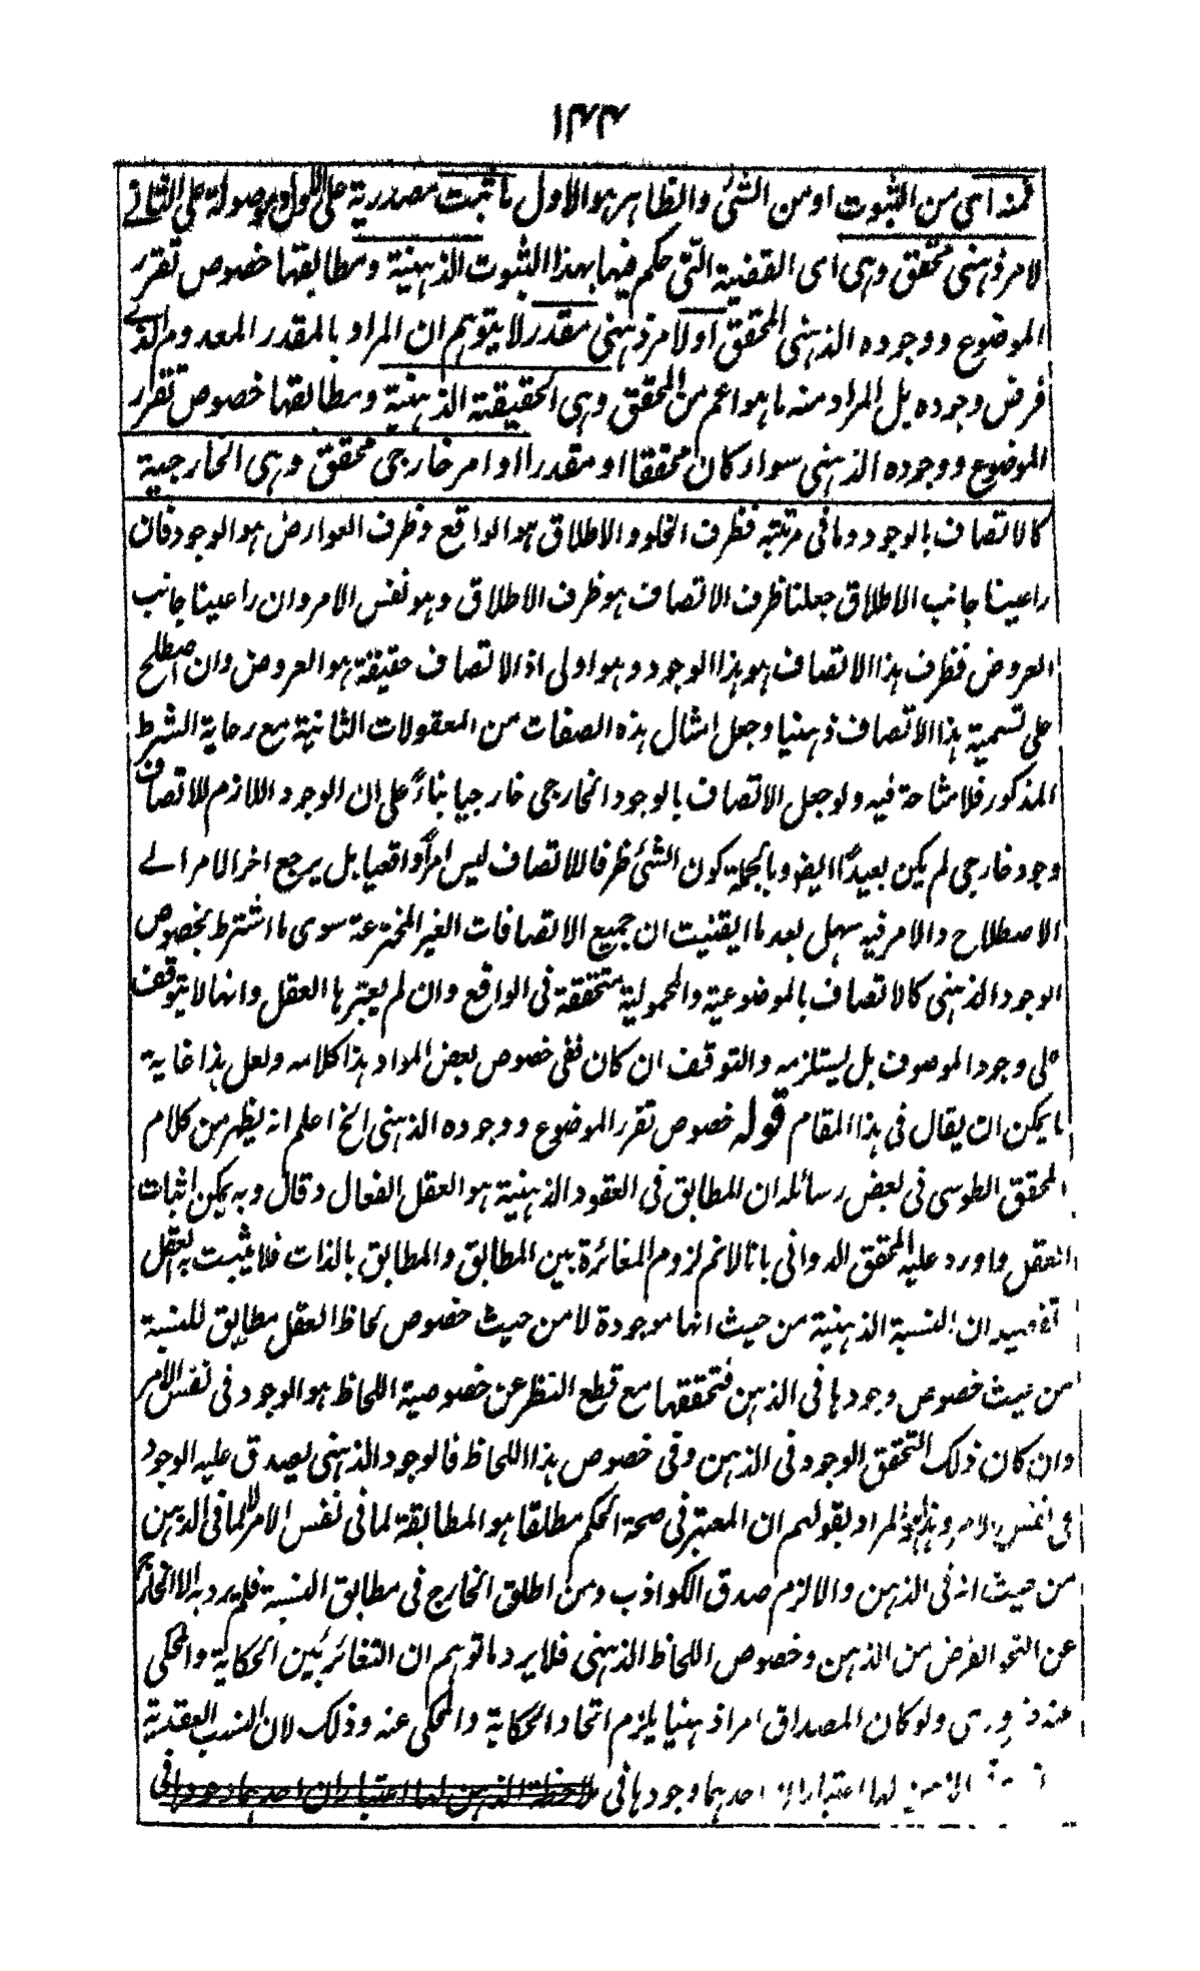 ۱۴۴
فمنه اى من الثبوت او من الشئ والظاهر هو الاول ما ثبت مصدرية على الاول وموصولة على الثانى
لامر ذهنى محقق وهى اى القضية التى حكم فيها بهذا الثبوت الذهنية ومطابقتها خصوص تقرر
الموضوع ووجوده الذهنى المحقق او لامر ذهنى مقدر لا يتوهم ان المراد بالمقدر المعدوم الذى
فرض وجوده بل المراد منه ما هو اعم من المحقق وهى الحقيقة الذهنية ومطابقتها خصوص تقرر
الموضوع ووجوده الذهنى سواء كان محققا او مقدرا او امر خارجى محقق وهى الخارجية
كالاتصاف بالوجود وما فى مرتبته فظرف الخلو والاطلاق هو الواقع وظرف العوارض هو الوجود فان
راعينا جانب الاطلاق جعلنا ظرف الاتصاف هو ظرف الاطلاق وهو نفس الامر وان راعينا جانب
العروض فظرف هذا الاتصاف هو هذا الوجود وهو اولى اذ الاتصاف حقيقة هو العروض وان اصطلح
على تسمية هذا الاتصاف ذهنيا وجعل امثال هذه الصفات من المعقولات الثانية مع رعاية الشرط
المذكور فلا مشاحة فيه ولو جعل الاتصاف بالوجود الخارجى خارجيا بناءً على ان الوجود اللازم للاتصاف
وجود خارجى لم يكن بعيداً ايضا وبالجملة كون الشئ ظرفا للاتصاف ليس امراً واقعيا بل يرجع اخر الامر الى
الاصطلاح والامر فيه سهل بعد ما ايقنيت ان جميع الاتصافات الغير المخترعة سوى ما اشترط بخصوص
الوجود الذهنى كالاتصاف بالموضوعية والمحمولية متحققة فى الواقع وان لم يعتبرها العقل وانها لا يتوقف
على وجود الموصوف بل يستلزمه والتوقف ان كان ففى خصوص بعض المواد هذا كلامه ولعل هذا غاية
ما يمكن ان يقال فى هذا المقام قوله خصوص تقرر الموضوع ووجوده الذهنى الخ اعلم انه يظهر من كلام
المحقق الطوسى فى بعض رسائله ان المطابق فى العقود الذهنية هو العقل الفعال وقال وبه يمكن اثبات
العقل واورد عليه المحقق الدوانى بانا لانم لزوم المغائرة بين المطابق والمطابق بالذات فلا يثبت به العقل
تفصيله ان النسبة الذهنية من حيث انها موجودة لا من حيث خصوص لحاظ العقل مطابق للنسبة
من حيث خصوص وجودها فى الذهن فتحققها مع قطع النظر عن خصوصية اللحاظ هو الوجود فى نفس الامر
وان كان ذلك التحقق الوجود فى الذهن وفى خصوص هذا اللحاظ فالوجود الذهنى يصدق عليه الوجود
فى نفس الامر وهذا هو المراد بقولهم ان المعتبر فى صحة الحكم مطلقا هو المطابقة لما فى نفس الامر لا لما فى الذهن
من حيث انه فى الذهن والا لزم صدق الكواذب ومن اطلق الخارج فى مطابق النسبة فلم يرد به الا الخارج
عن النحو الفرض من الذهن وخصوص اللحاظ الذهنى فلا يرد ما توهم ان التغائر بين الحكاية والمحكى
عنه ضرورى ولو كان المصداق امرا ذهنيا يلزم اتحاد الحكاية والمحكى عنه وذلك لان النسب العقدية
لها اعتباران احدهما وجودها فى ملاحظة الذهن لها اعتباران احدهما وجودها فى